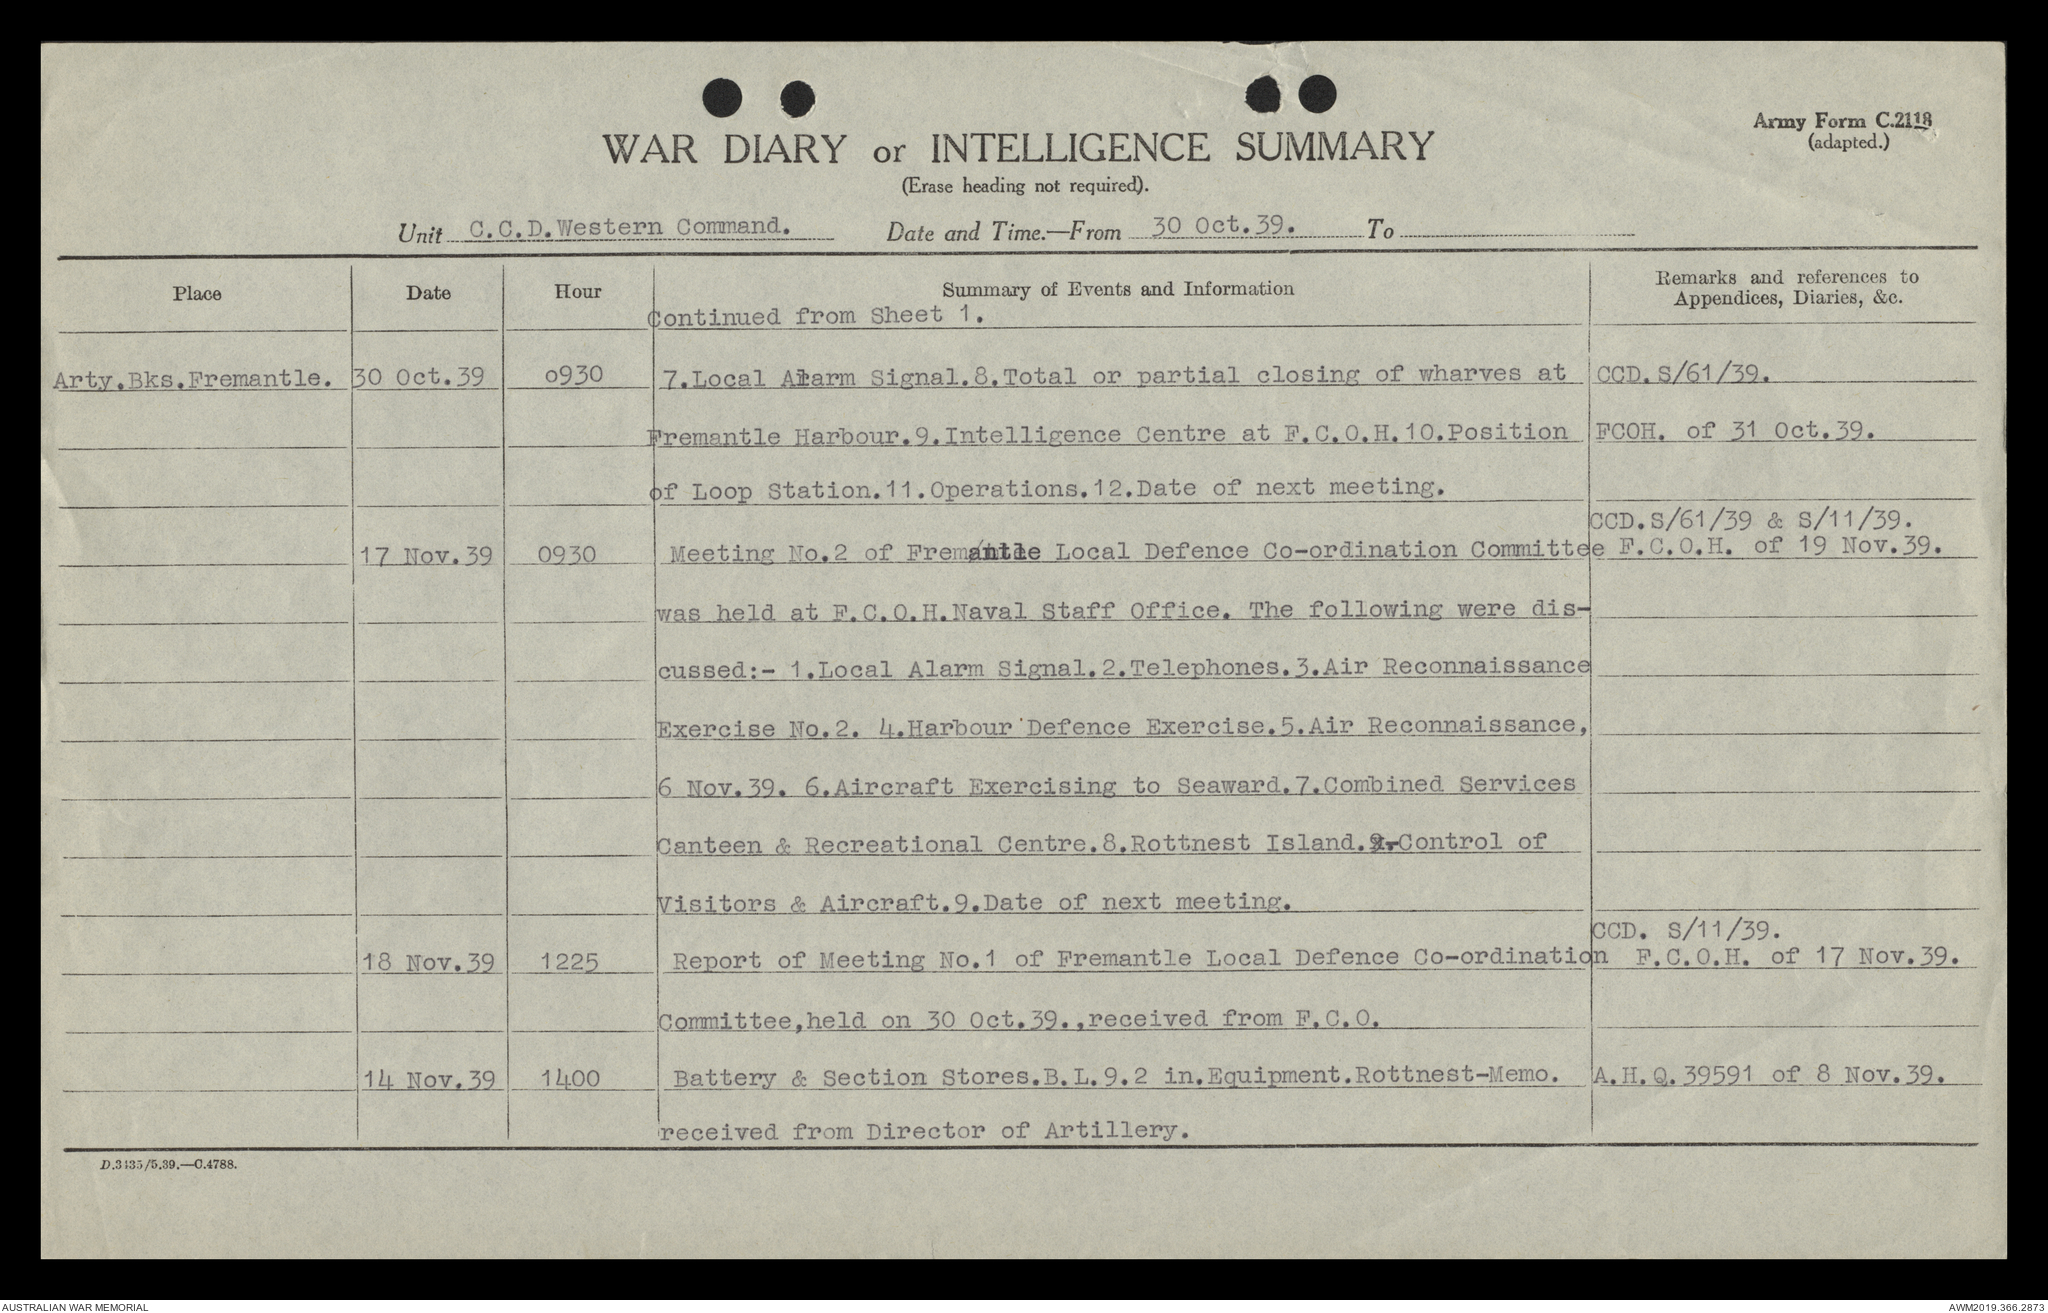 Army Form C.2118
(adapted.)
WAR DIARY or INTELLIGENCE SUMMARY
(Erase heading not required).
Unit C.C.D.Western Command. Date and Time.—From 30 Oct.39. To
Place Date Hour Summary of Events and Information Remarks and references to Appendices, Diaries, &c.
Continued from Sheet 1.
Arty.Bks.Fremantle. 30 Oct.39 0930 7.Local Alarm Signal.8.Total or partial closing of wharves at CCD.S/61/39.
Fremantle Harbour.9.Intelligence Centre at F.C.O.H.10.Position FCOH. of 31 Oct.39.
of Loop Station.11.Operations.12.Date of next meeting.
CCD.S/61/39 & S/11/39.
17 Nov.39 0930 Meeting No.2 of Fremantle Local Defence Co-ordination Committee F.C.O.H. of 19 Nov.39.
was held at F.C.O.H.Naval Staff Office. The following were dis-
cussed:- 1.Local Alarm Signal.2.Telephones.3.Air Reconnaissance
Exercise No.2. 4.Harbour Defence Exercise.5.Air Reconnaissance,
6 Nov.39. 6.Aircraft Exercising to Seaward.7.Combined Services
Canteen & Recreational Centre.8.Rottnest Island.Control of
Visitors & Aircraft.9.Date of next meeting.
CCD. S/11/39.
18 Nov.39 1225 Report of Meeting No.1 of Fremantle Local Defence Co-ordination F.C.O.H. of 17 Nov.39.
Committee,held on 30 Oct.39.,received from F.C.O.
14 Nov.39 1400 Battery & Section Stores.B.L.9.2 in.Equipment.Rottnest-Memo. A.H.Q.39591 of 8 Nov.39.
received from Director of Artillery.
D.3435/5.39.—C.4788.
AUSTRALIAN WAR MEMORIAL AWM2019.366.2873